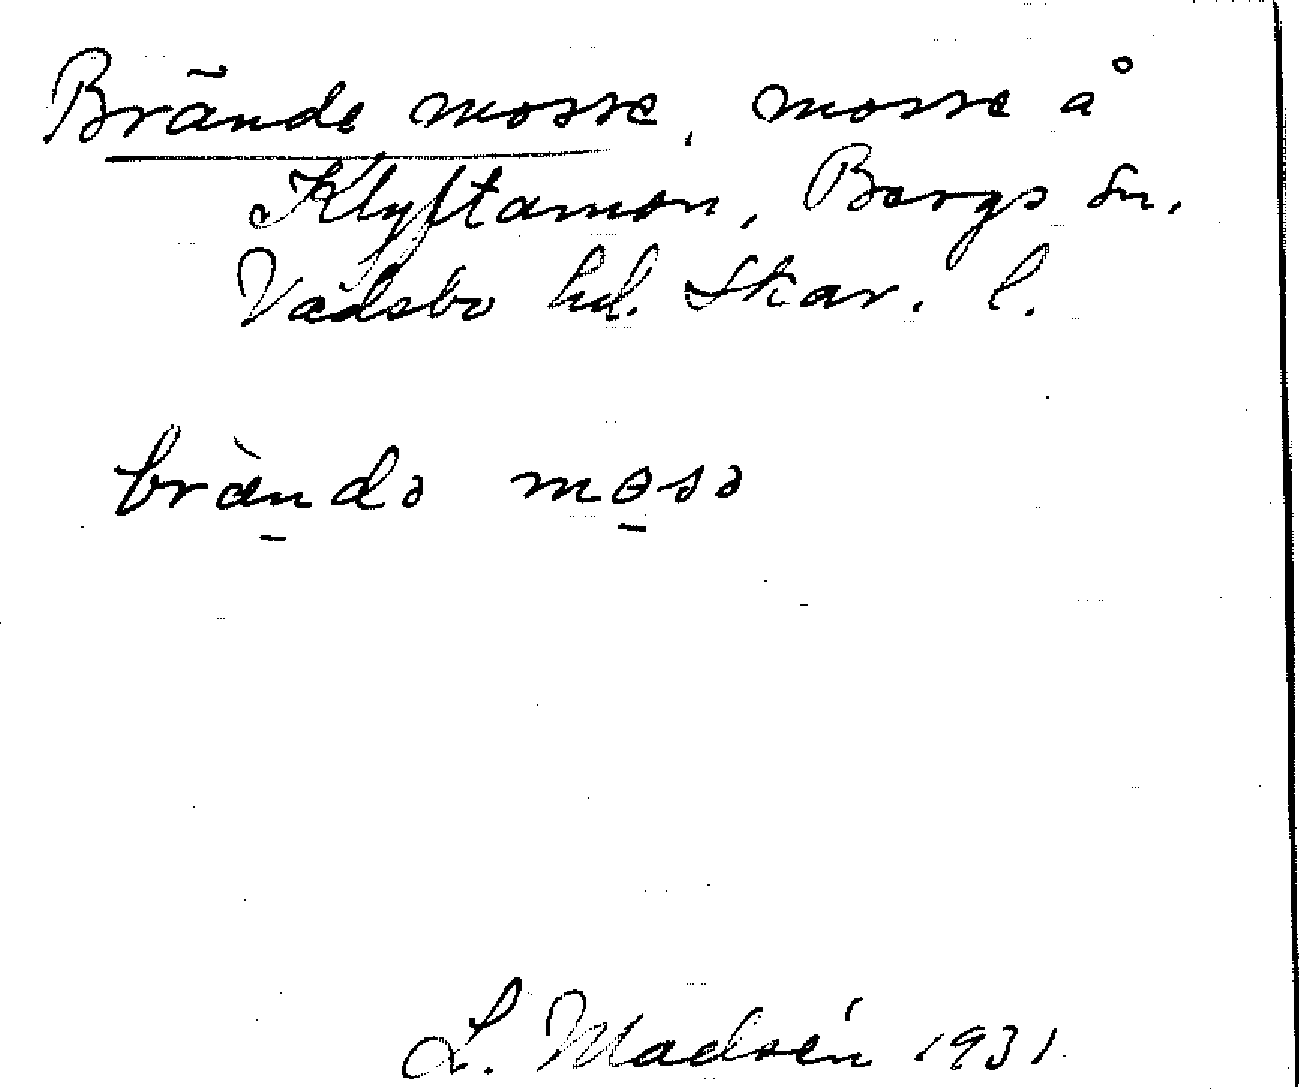 Brände mosse, mosse å
Klyftamon, Bergs sn.
Vadsbo hd. Skar. l.
bràndə mosə
L. Madsén 1931.